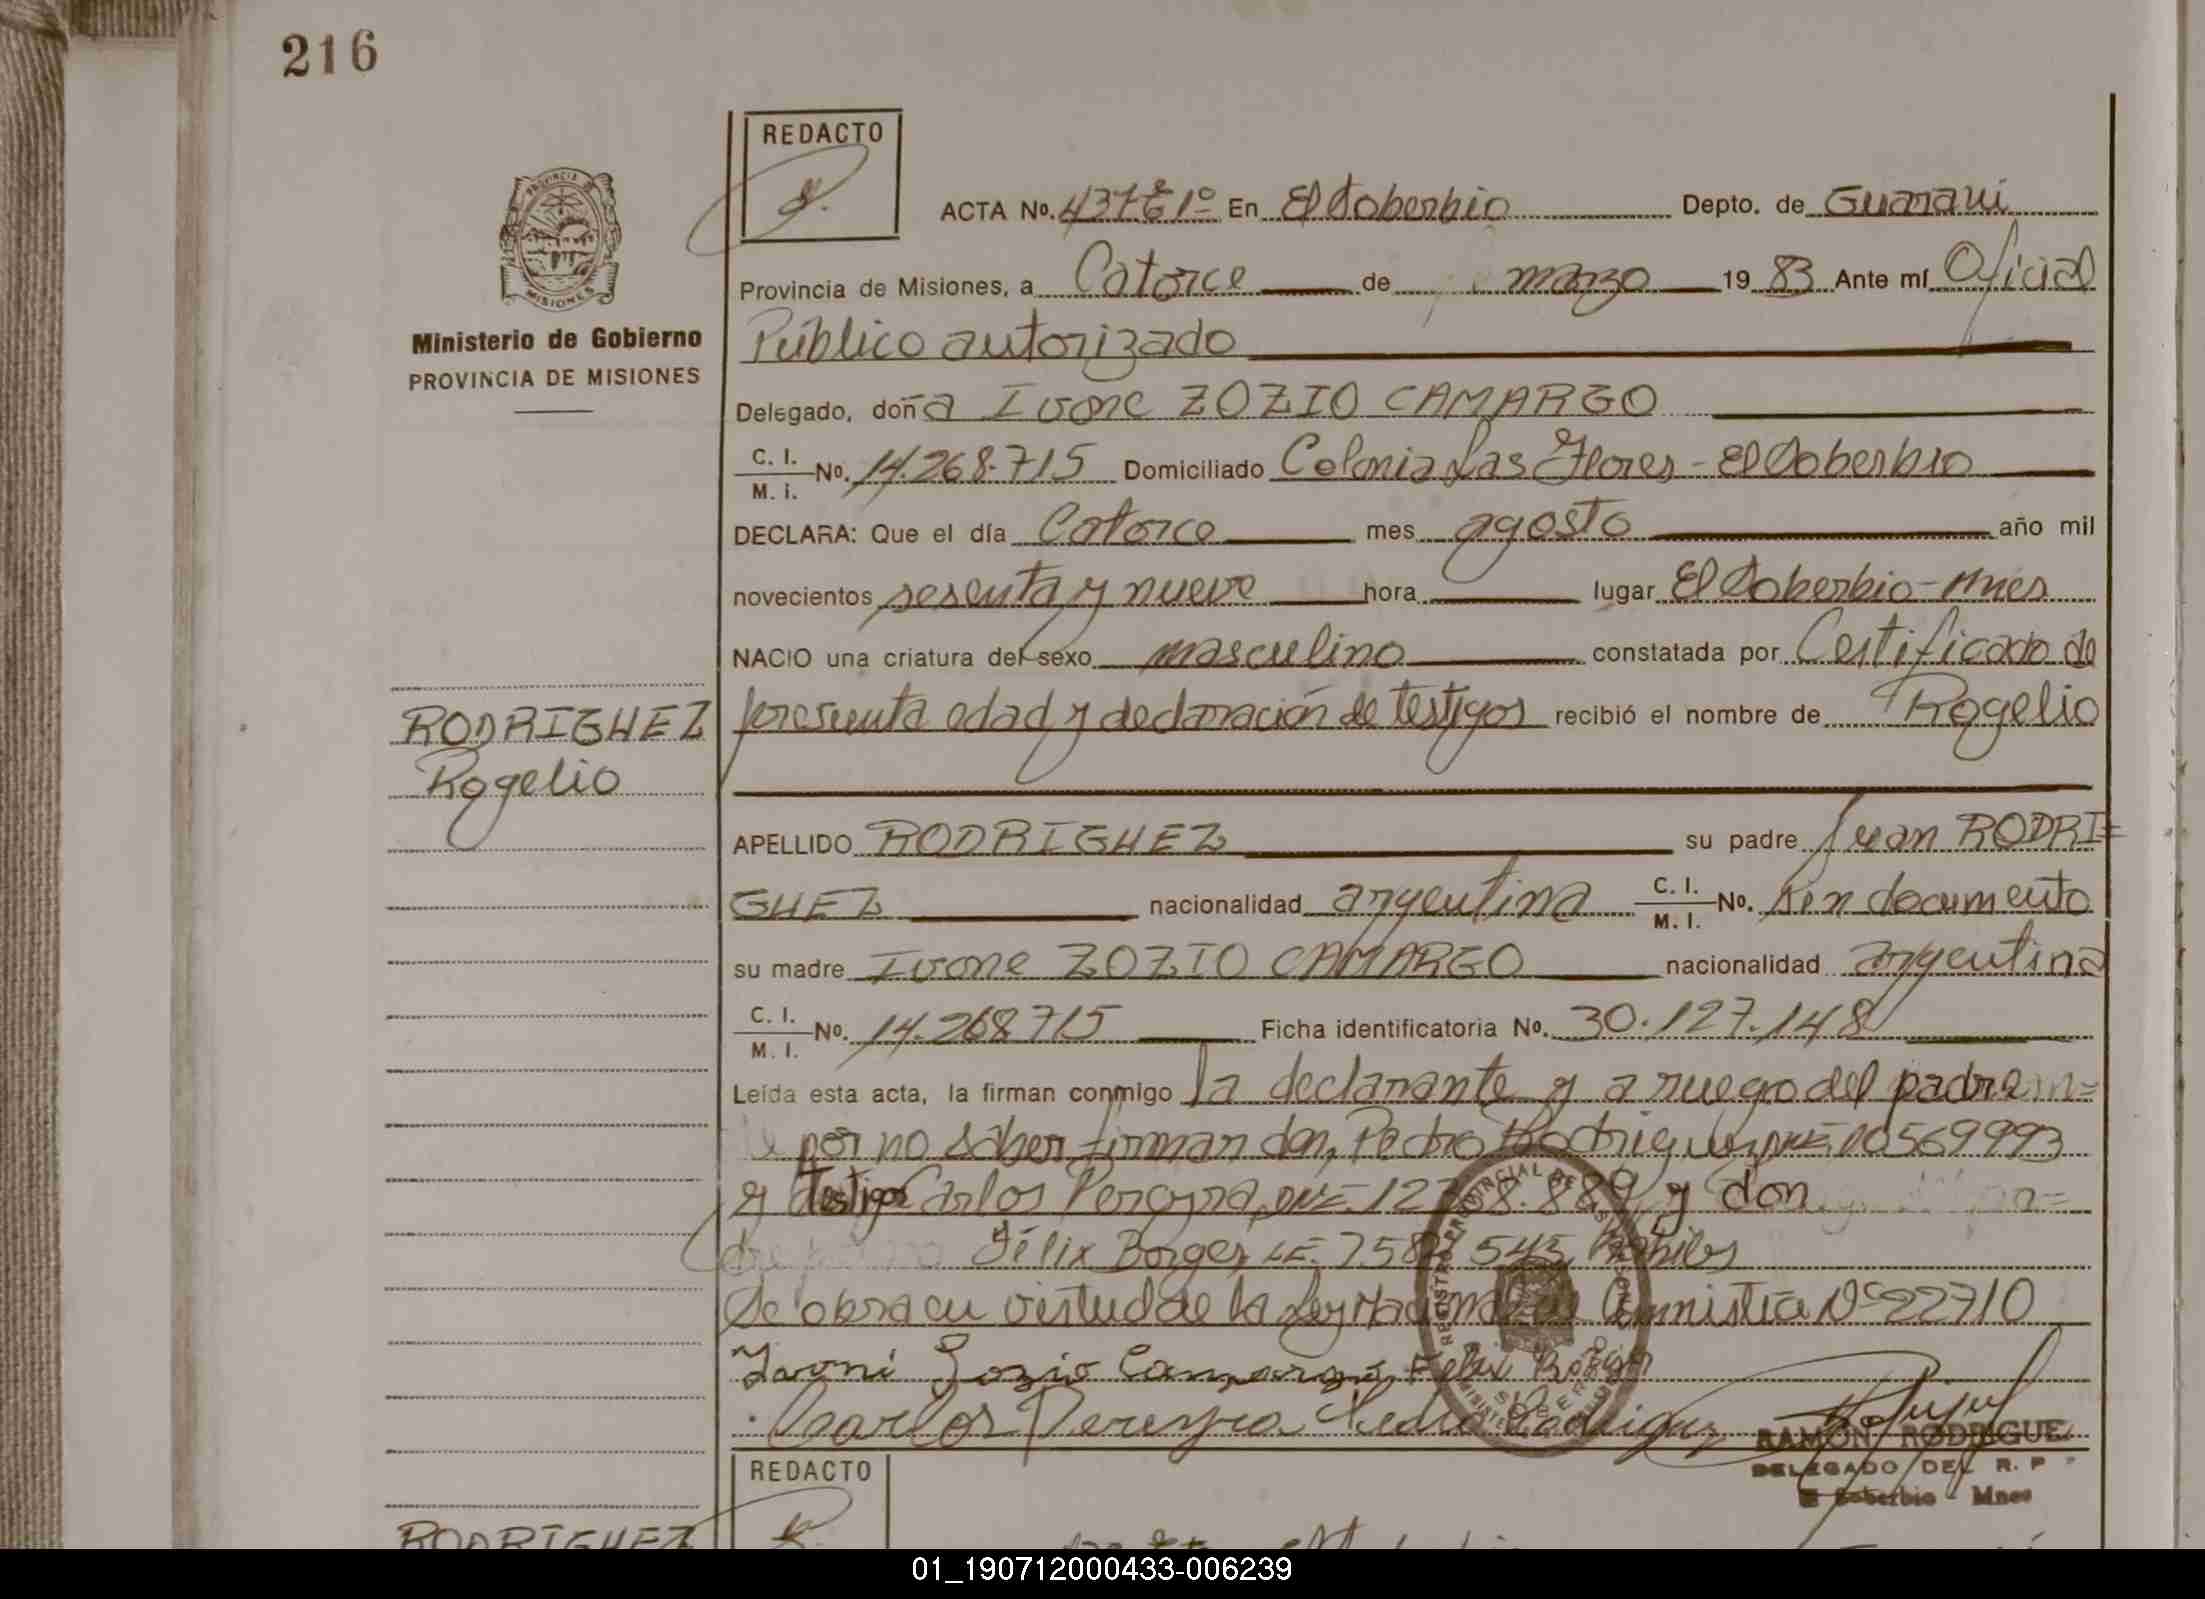 216
REDACTO
PROVINCIA DE
MISIONES
Ministerio de Gobierno
PROVINCIA DE MISIONES
ACTA No. 437 Eº 1º En El Soberbio Depto. de Guaraní
Provincia de Misiones, a Catorce de marzo 1983 Ante mí Oficial
Público autorizado
Delegado, doña Ivone ZOZIO CAMARGO
C. I. M. i. No. 14.268.715 Domiciliado Colonia Las Flores - El Soberbio
DECLARA: Que el día Catorce mes agosto año mil
novecientos sesenta y nueve hora lugar El Soberbio - Mnes
NACIO una criatura del sexo masculino constatada por Certificado de
presunta edad y declaración de testigos recibió el nombre de Rogelio
RODRIGUEZ
Rogelio
APELLIDO RODRIGUEZ su padre Juan RODRI=
GUEZ nacionalidad argentina C. I. M. I. No. sin documento
su madre Ivone ZOZIO CAMARGO nacionalidad argentina
C. I. M. I. No. 14.268715 Ficha identificatoria No. 30.127.148
Leída esta acta, la firman conmigo la declarante y a ruego del padre
por no saber firmar don, Pedro Rodriguez DNI 10569993
y Testigos Carlos Pereyra, DNI. 12 8.889 y don
Félix Borges LE. 758 545 hábiles
Se obra en virtud de la Ley Nacional de Amnistía Nº 22710
Ivoni Zozio Camargo Felix Borges
Carlos Pereyra Pedro Rodriguez
REGISTRO PROVINCIAL DE LAS PERSONAS
RAMON RODRIGUE
DELEGADO DEL R. P
El Soberbio - Mnes
REDACTO
RODRIGUEZ
01_190712000433-006239